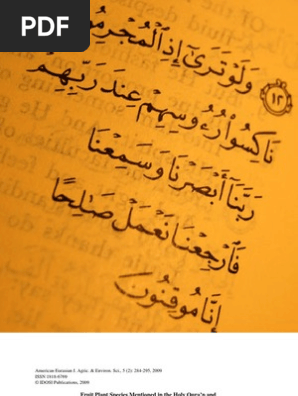 PDF
وَلَوْ تَرَىٰٓ إِذِ ٱلْمُجْرِمُو
١٢
نَاكِسُوا۟ رُءُوسِهِمْ عِندَ رَبِّهِمْ
رَبَّنَآ أَبْصَرْنَا وَسَمِعْنَا
فَٱرْجِعْنَا نَعْمَلْ صَٰلِحًا
إِنَّا مُوقِنُونَ
American Eurasian J. Agric. & Environ. Sci., 5 (2): 284-295, 2009
ISSN 1818-6769
© IDOSI Publications, 2009
Fruit Plant Species Mentioned in the Holy Qura'n and